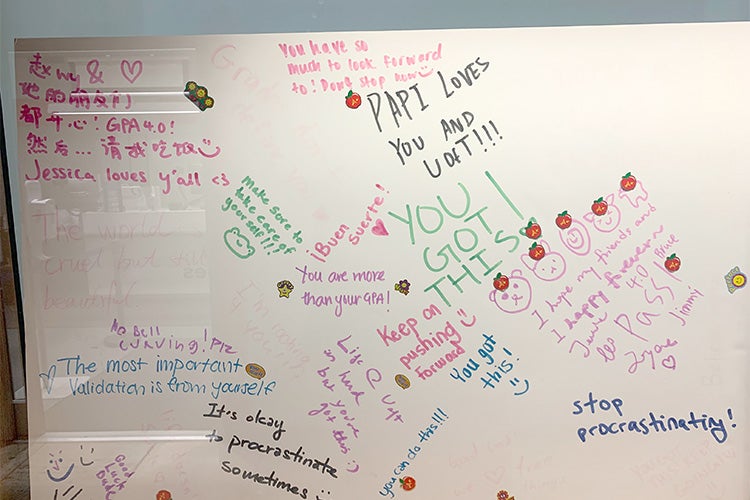 赵 & ♡
他的朋友们
都开心! GPA 4.0!
然后... 请我吃饭
Jessica loves y'all <3
You have so
much to look forward
to! Don't stop now
PAPI LOVES
YOU AND
UOFT!!!
make sure to
take care of
yourself!!!
¡Buen
suerte!
YOU
GOT
THIS!
The world
cruel but still
beautiful.
You are more
than your GPA!
I hope my friends and
I happy forever~
40
Pass!
Jimmy
NO Bell
curving! Plz
The most important
Validation is from yourself
Keep on
pushing
forward
You got
this!
Life @ UofT
is hard
but you've
got this :)
It's okay
to procrastinate
sometimes
you can do this!!!
stop
procrastinating!
Good
Luck
Dude